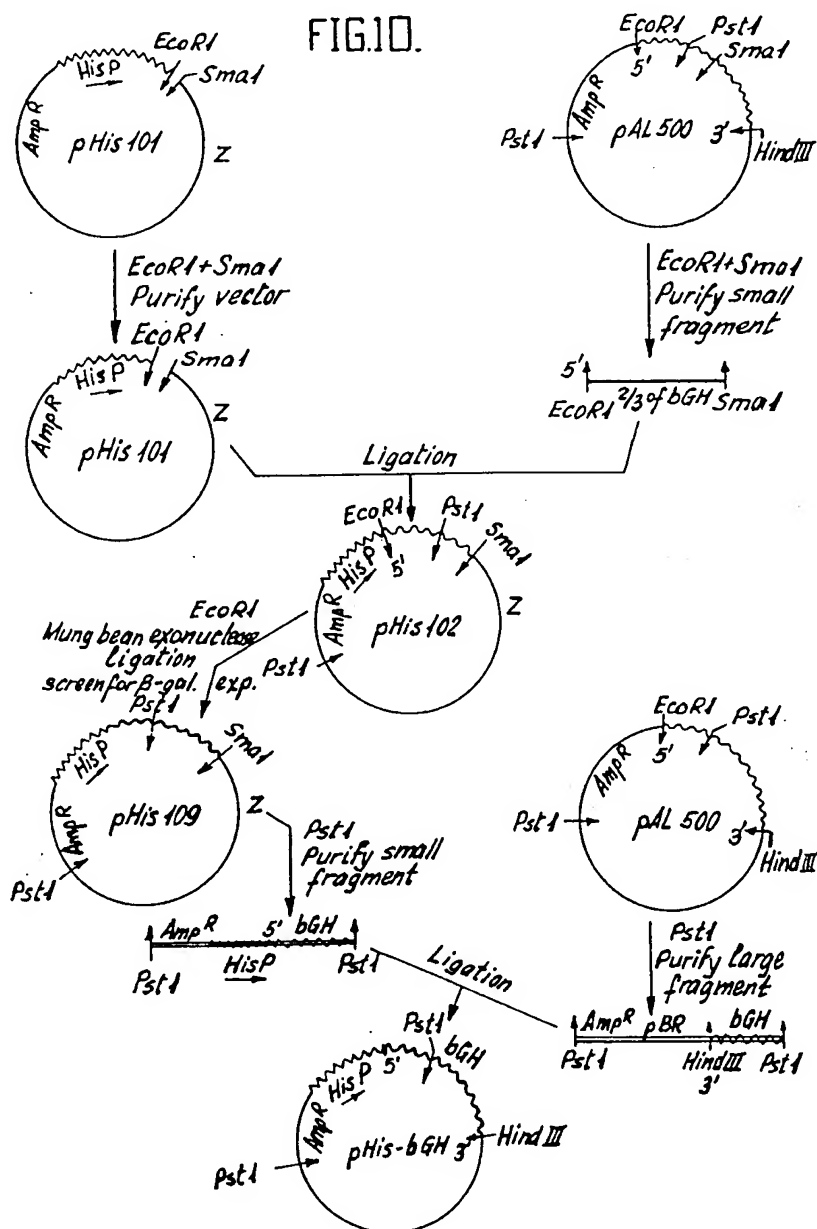 FIG.10.
EcoR1
HisP
Sma1
AmpR
pHis 101
Z
EcoR1
Pst1
Sma1
5'
AmpR
Pst1
pAL 500
3'
Hind III
EcoR1+Sma1
Purify vector
EcoR1+Sma1
Purify small
fragment
EcoR1
Sma1
HisP
AmpR
pHis 101
Z
5'
EcoR1 2/3 of bGH Sma1
Ligation
EcoR1
Pst1
Sma1
HisP
5'
AmpR
pHis 102
Z
Pst1
EcoR1
Mung bean exonuclease
Ligation
screen for β-gal. exp.
Pst1
Sma1
HisP
AmpR
pHis 109
Z
Pst1
Pst1
Purify small
fragment
EcoR1
Pst1
5'
AmpR
Pst1
pAL 500
3'
Hind III
Pst1
Purify large
fragment
AmpR 5' bGH
Pst1 HisP Pst1
Ligation
AmpR pBR bGH
Pst1 Hind III Pst1
3'
Pst1
5' bGH
HisP
AmpR
pHis-bGH
3'
Hind III
Pst1